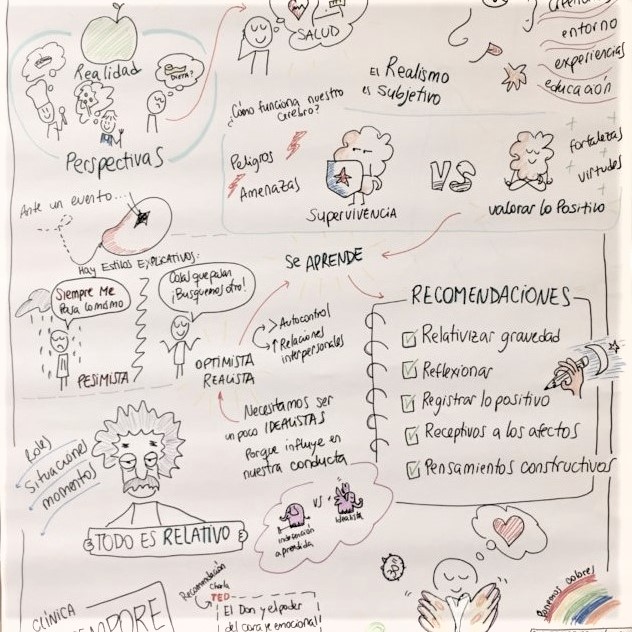 SALUD
entorno
experiencias
educación
Realidad
DIETA?
Perspectivas
El Realismo
es subjetivo
¿Cómo funciona nuestro
cerebro?
Peligros
Amenazas
SUPERVIVENCIA
VS
valorar lo Positivo
fortalezas
virtudes
Ante un evento...
Hay Estilos EXPLICATIVOS:
Siempre Me
Pasa lo mismo
Cosas que pasan
¡Busquemos otro!
PESIMISTA
OPTIMISTA
REALISTA
Se APRENDE
> Autocontrol
Relaciones
interpersonales
Necesitamos ser
un poco IDEALISTAS
Porque influye en
nuestra conducta
RECOMENDACIONES
Relativizar gravedad
Reflexionar
Registrar lo positivo
Receptivos a los afectos
Pensamientos constructivos
Roles
Situaciones
momentos
TODO ES RELATIVO
VS
indefensión
aprendida
Idealista
Recomendación
Charla
TED
El Don y el poder
del coraje emocional
CLÍNICA
Ponemos colores